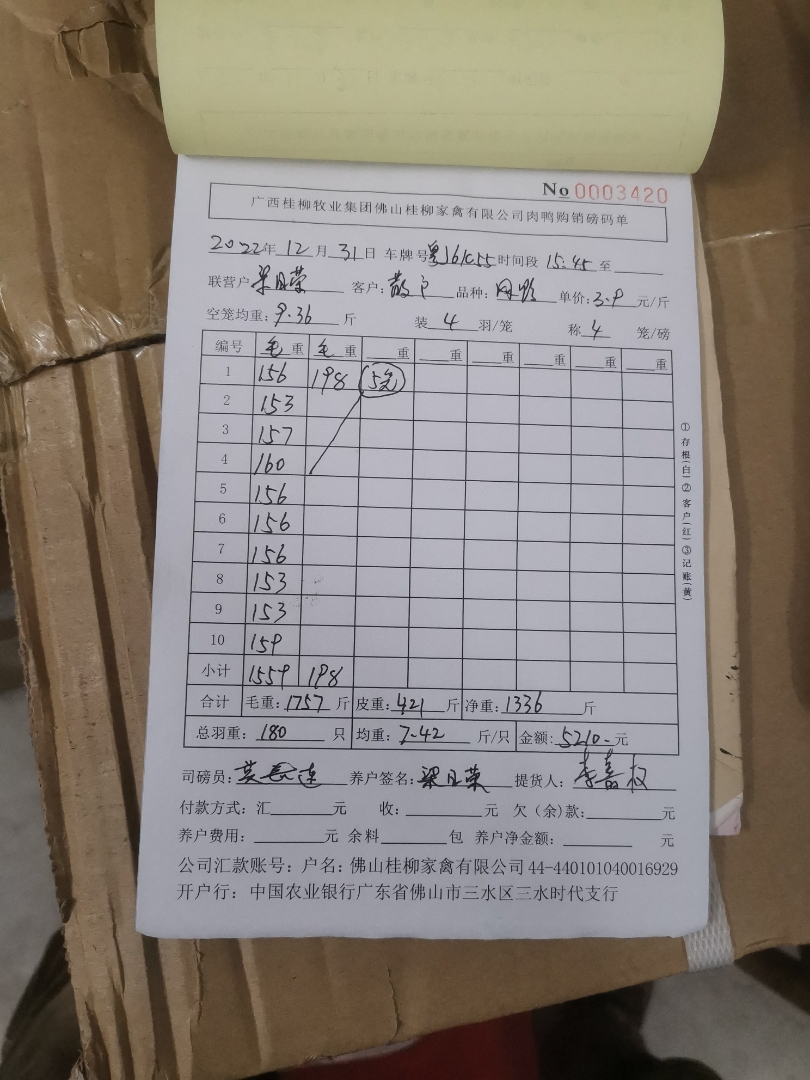 No 0003420
广西桂柳牧业集团佛山桂柳家禽有限公司肉鸭购销磅码单
2022年 12 月 31 日 车牌号 粤J61C55 时间段 15:45 至
联营户 梁日荣 客户: 散户 品种: 单价: 3.9 元/斤
空笼均重: 9.36 斤 装 4 羽/笼 称 4 笼/磅
编号 毛 重 毛 重 重 重 重 重 重 重
1 156 198 5笼
2 153
3 157
4 160
5 156
6 156
7 156
8 153
9 153
10 159
小计 1559 198
合计 毛重: 1757 斤 皮重: 421 斤 净重: 1336 斤
总羽重: 180 只 均重: 7.42 斤/只 金额: 5210- 元
司磅员: 养户签名: 梁日荣 提货人: 李嘉权
付款方式: 汇 元 收: 元 欠(余)款: 元
养户费用: 元 余料 包 养户净金额: 元
公司汇款账号: 户名: 佛山桂柳家禽有限公司 44-440101040016929
开户行: 中国农业银行广东省佛山市三水区三水时代支行
①存根(白)②客户(红)③记账(黄)